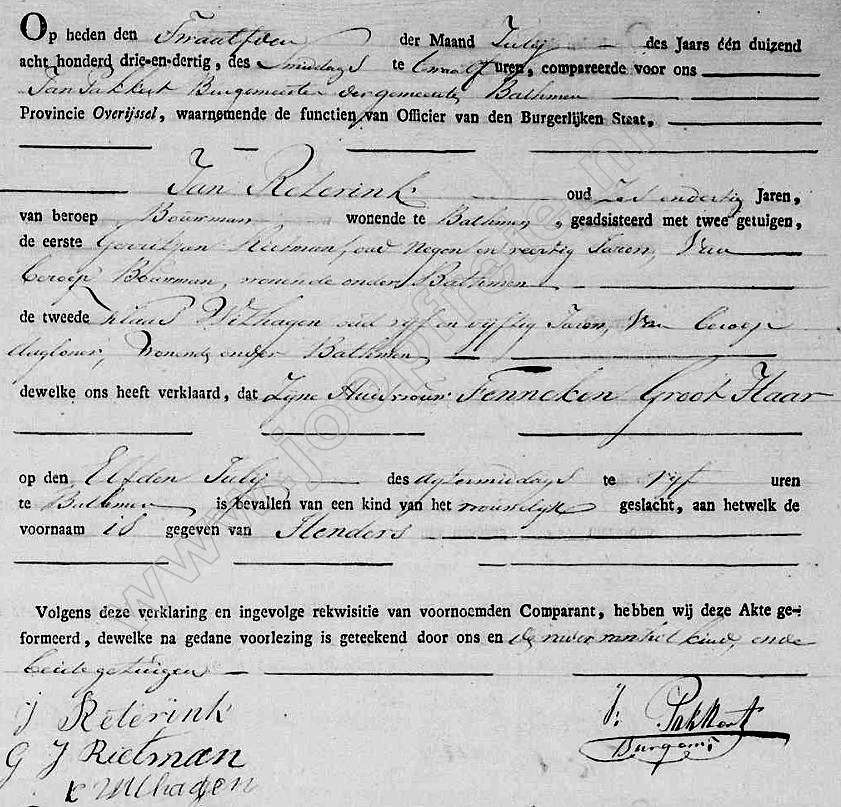 Op heden den Twaalfden der Maand Julij des Jaars één duizend
acht honderd drie-en-dertig, des middags te twaalf uren, compareerde voor ons
Jan Pakkert Burgemeester der gemeente Bathmen
Provincie Overijssel, waarnemende de functien van Officier van den Burgerlijken Staat,
Jan Reterink oud Zes en dertig Jaren,
van beroep Bouwman wonende te Bathmen, geadsisteerd met twee getuigen,
de eerste Gerrit Jan Rietman, oud negen en veertig Jaren, Van
beroep Bouwman, wonende onder Bathmen
de tweede Klaas Wilhagen oud vijf en vijftig Jaren, Van beroep
dagloner, Wonende onder Bathmen
dewelke ons heeft verklaard, dat Zijne Huisvrouw Fenneken Groot Haar
op den Elfden Julij des agtermiddags te vijf uren
te Bathmen is bevallen van een kind van het vrouwelijk geslacht, aan hetwelk de
voornaam is gegeven van Henders
Volgens deze verklaring en ingevolge rekwisitie van voornoemden Comparant, hebben wij deze Akte ge-
formeerd, dewelke na gedane voorlezing is geteekend door ons en de vader van het kind, en de
beide getuigen
J Reterink
J. Pakkert
Burgemr
G J Rietman
K Wilhagen